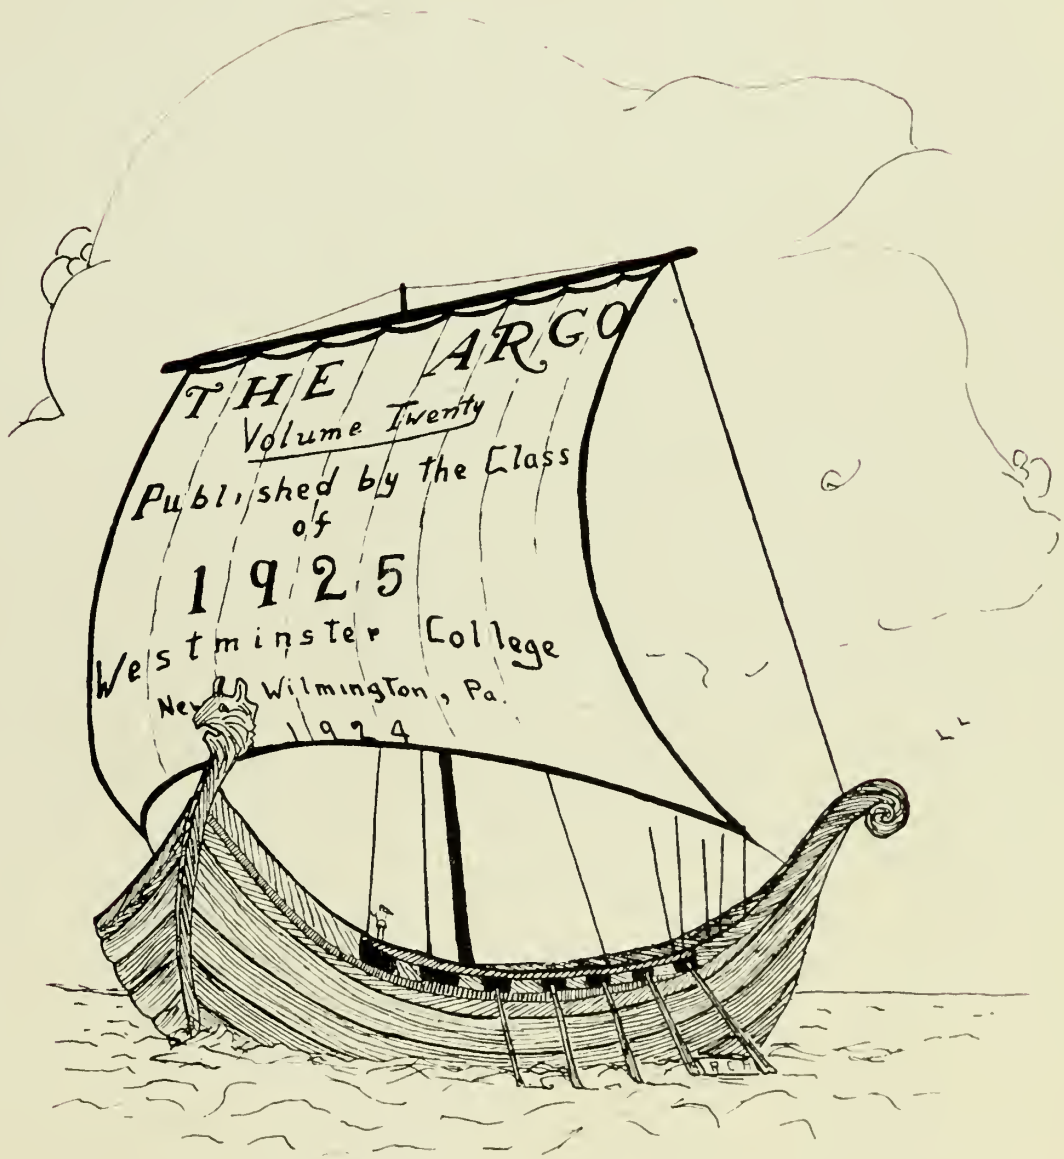 THE ARGO
Volume Twenty
Published by the Class
of
1925
Westminster College
New Wilmington, Pa.
1924
RCH